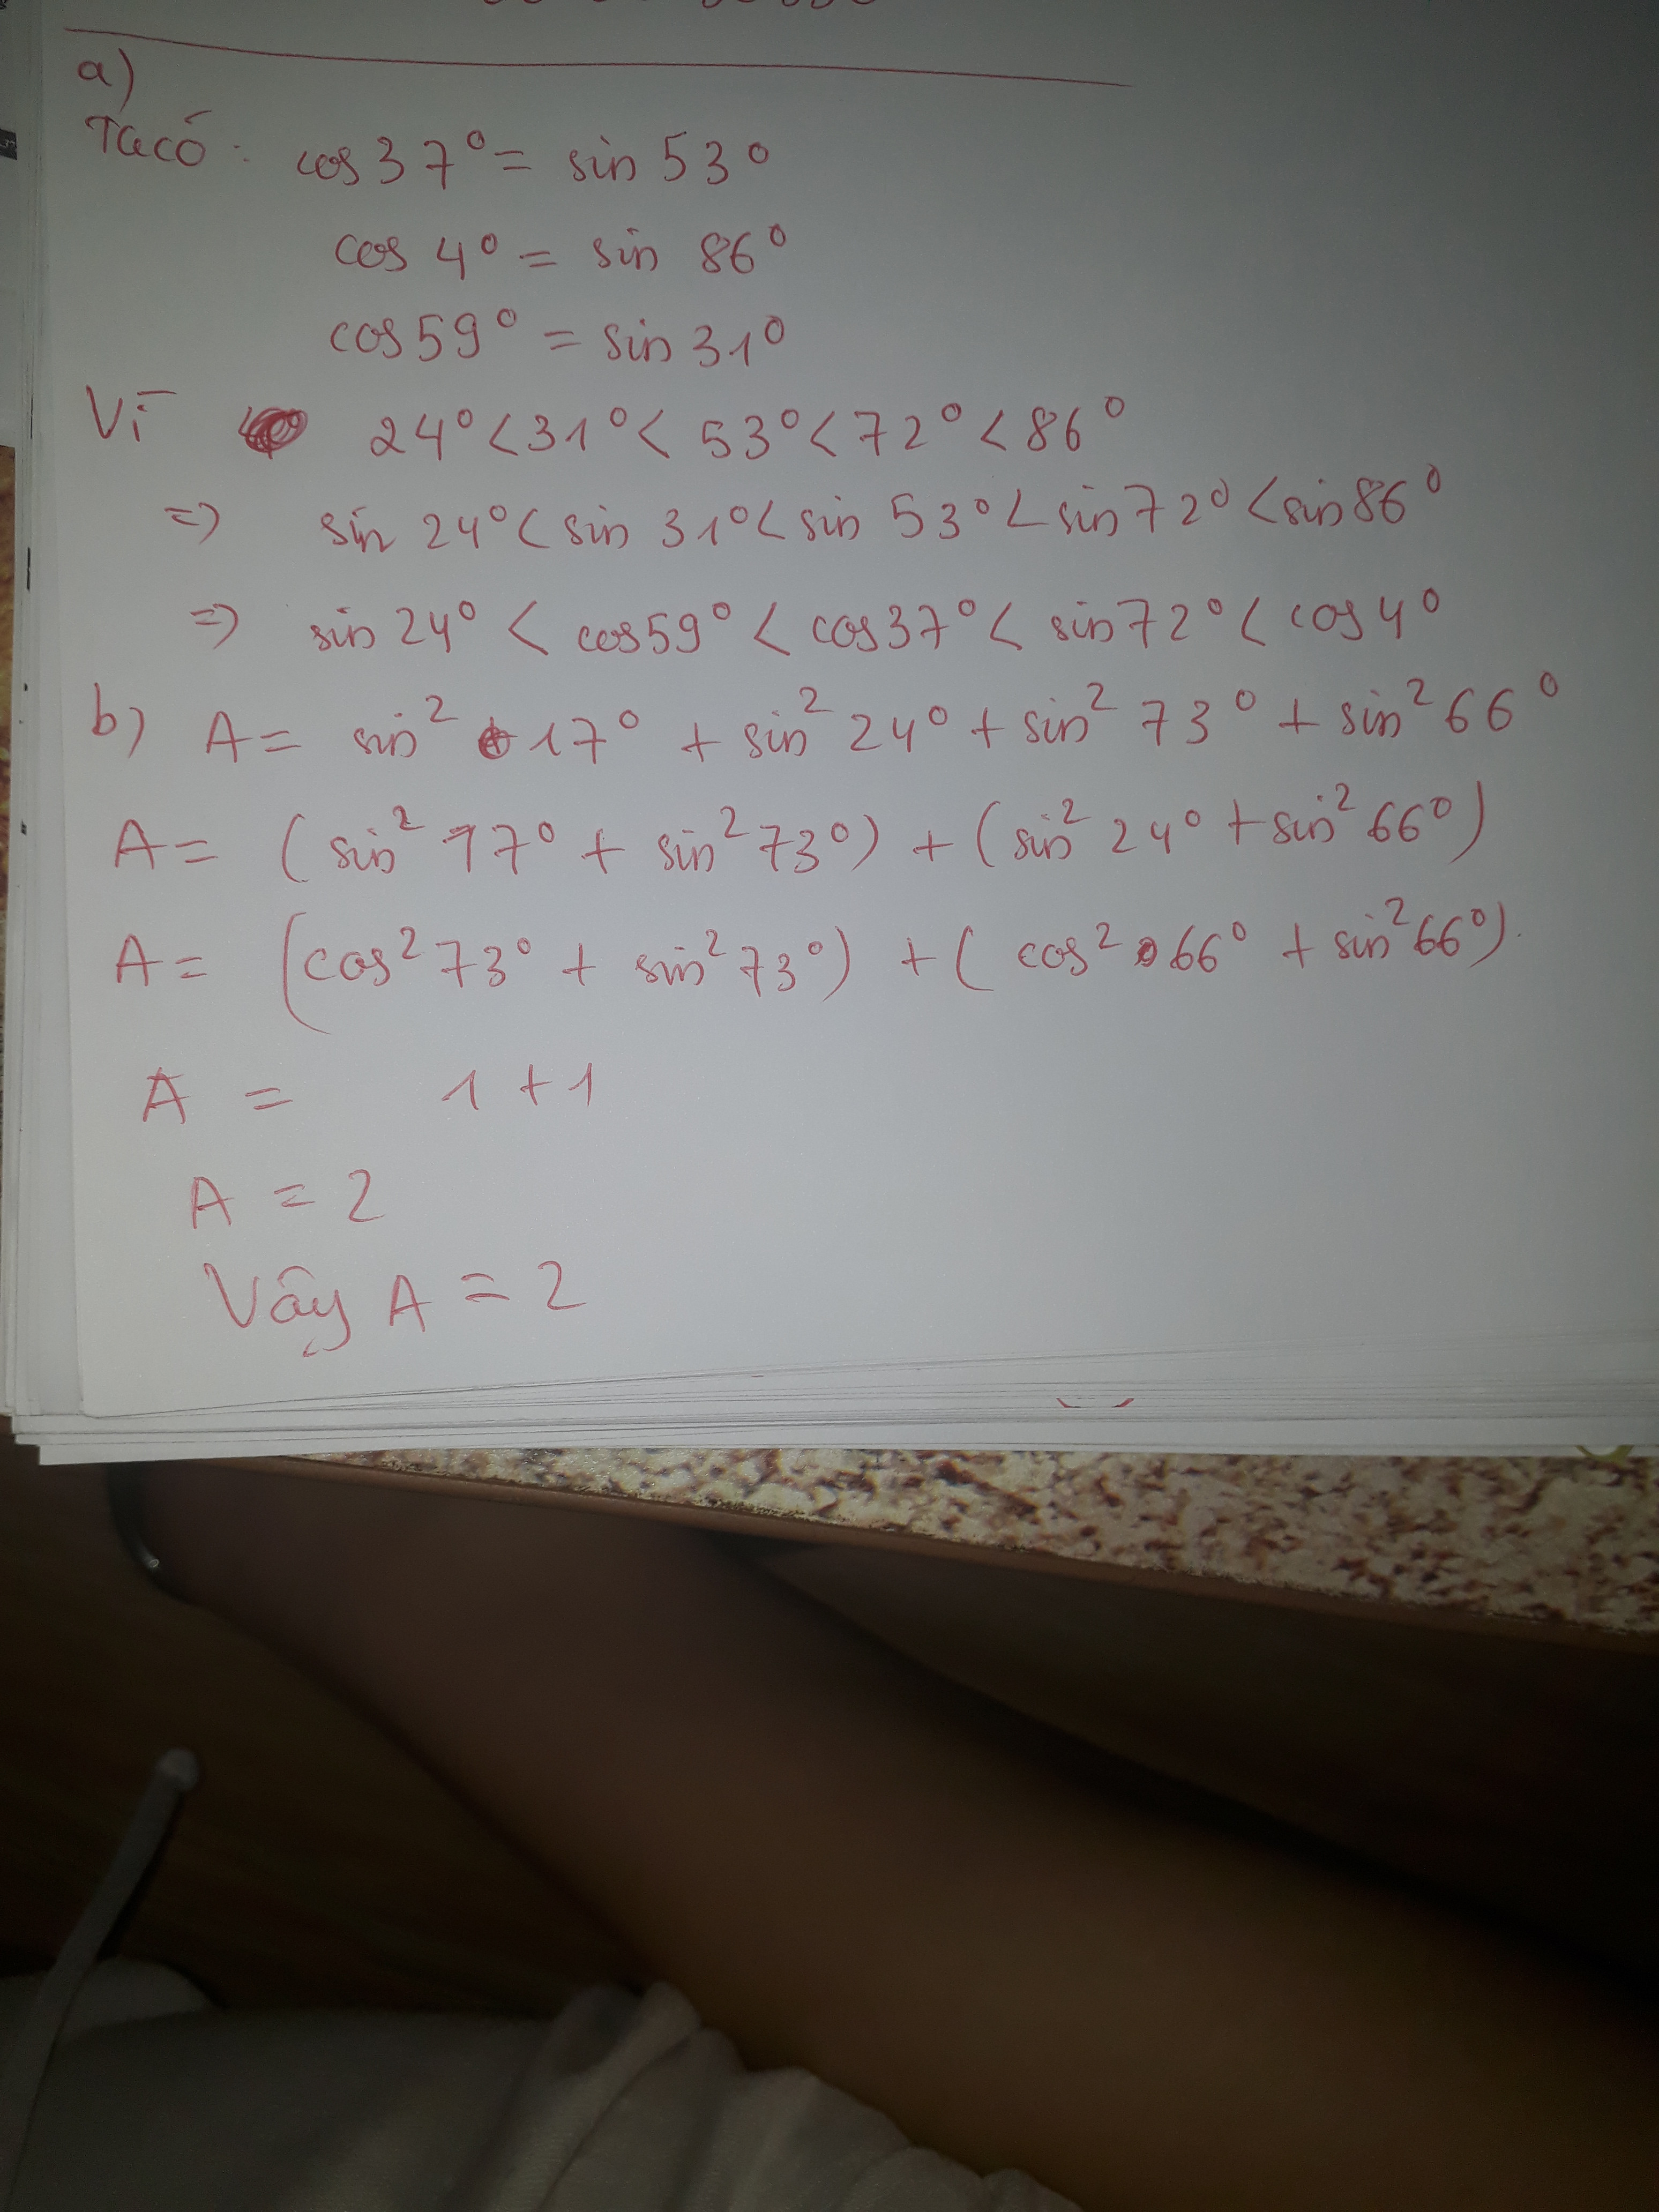 a)
Ta có: cos 37° = sin 53°
cos 4° = sin 86°
cos 59° = sin 31°
Vì 24° < 31° < 53° < 72° < 86°
=> sin 24° < sin 31° < sin 53° < sin 72° < sin 86°
=> sin 24° < cos 59° < cos 37° < sin 72° < cos 4°
b) A = sin² 17° + sin² 24° + sin² 73° + sin² 66°
A = (sin² 17° + sin² 73°) + (sin² 24° + sin² 66°)
A = (cos² 73° + sin² 73°) + (cos² 66° + sin² 66°).
A = 1 + 1
A = 2
Vậy A = 2